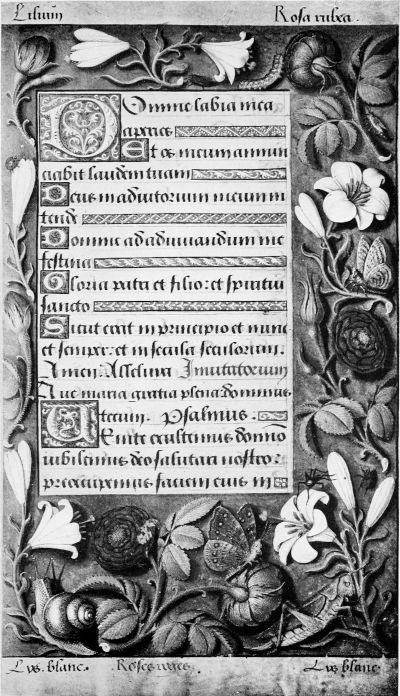 Lilium Rosa rubea.
Domine labia mea
aperies
Et os meum annun
ciabit laudem tuam
Deus in adiutorium meum in
tende
Domine ad adiuuandum me
festina
Gloria patri et filio: et spiritui
sancto
Sicut erat in principio et nunc
et semper: et in secula seculorum.
Amen. Alleluia Inuitatorium
Aue maria gratia plena: dominus
tecum. Psalmus.
Uenite exultemus domino
iubilemus deo salutari nostro:
preoccupemus faciem eius in
Lys. blanc. Roses Lys blanc.